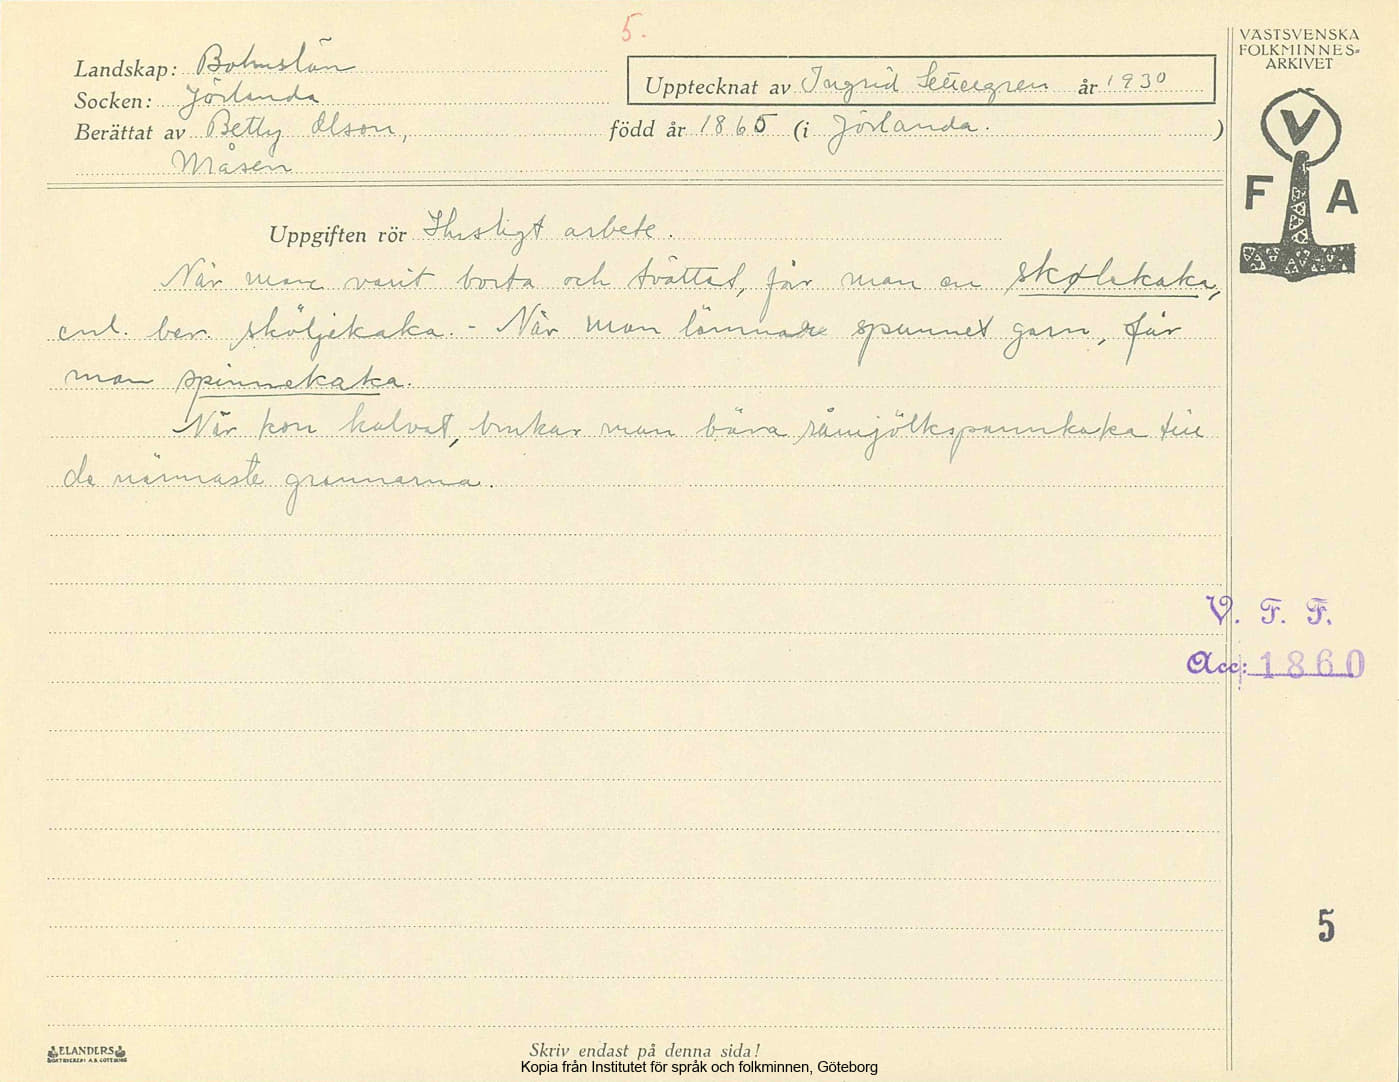 5.
VÄSTSVENSKA
FOLKMINNES-
ARKIVET
Landskap: Bohuslän
Upptecknat av Ingrid år 1930
Socken: Jörlanda
Berättat av Betty Olson, född år 1865 (i Jörlanda. )
Måsen
V
F A
Uppgiften rör Husligt arbete.
När man varit borta och tvättat, får man en skølekaka,
enl. ber. sköljekaka. - När man lämnade spunnet garn, får
man spinnekaka.
När kon kalvat, brukar man bära råmjölkspannkaka till
de närmaste grannarna.
V. F. F.
Acc: 1860
5
ELANDERS
BOKTRYCKERI A.B. GÖTEBORG
Skriv endast på denna sida!
Kopia från Institutet för språk och folkminnen, Göteborg